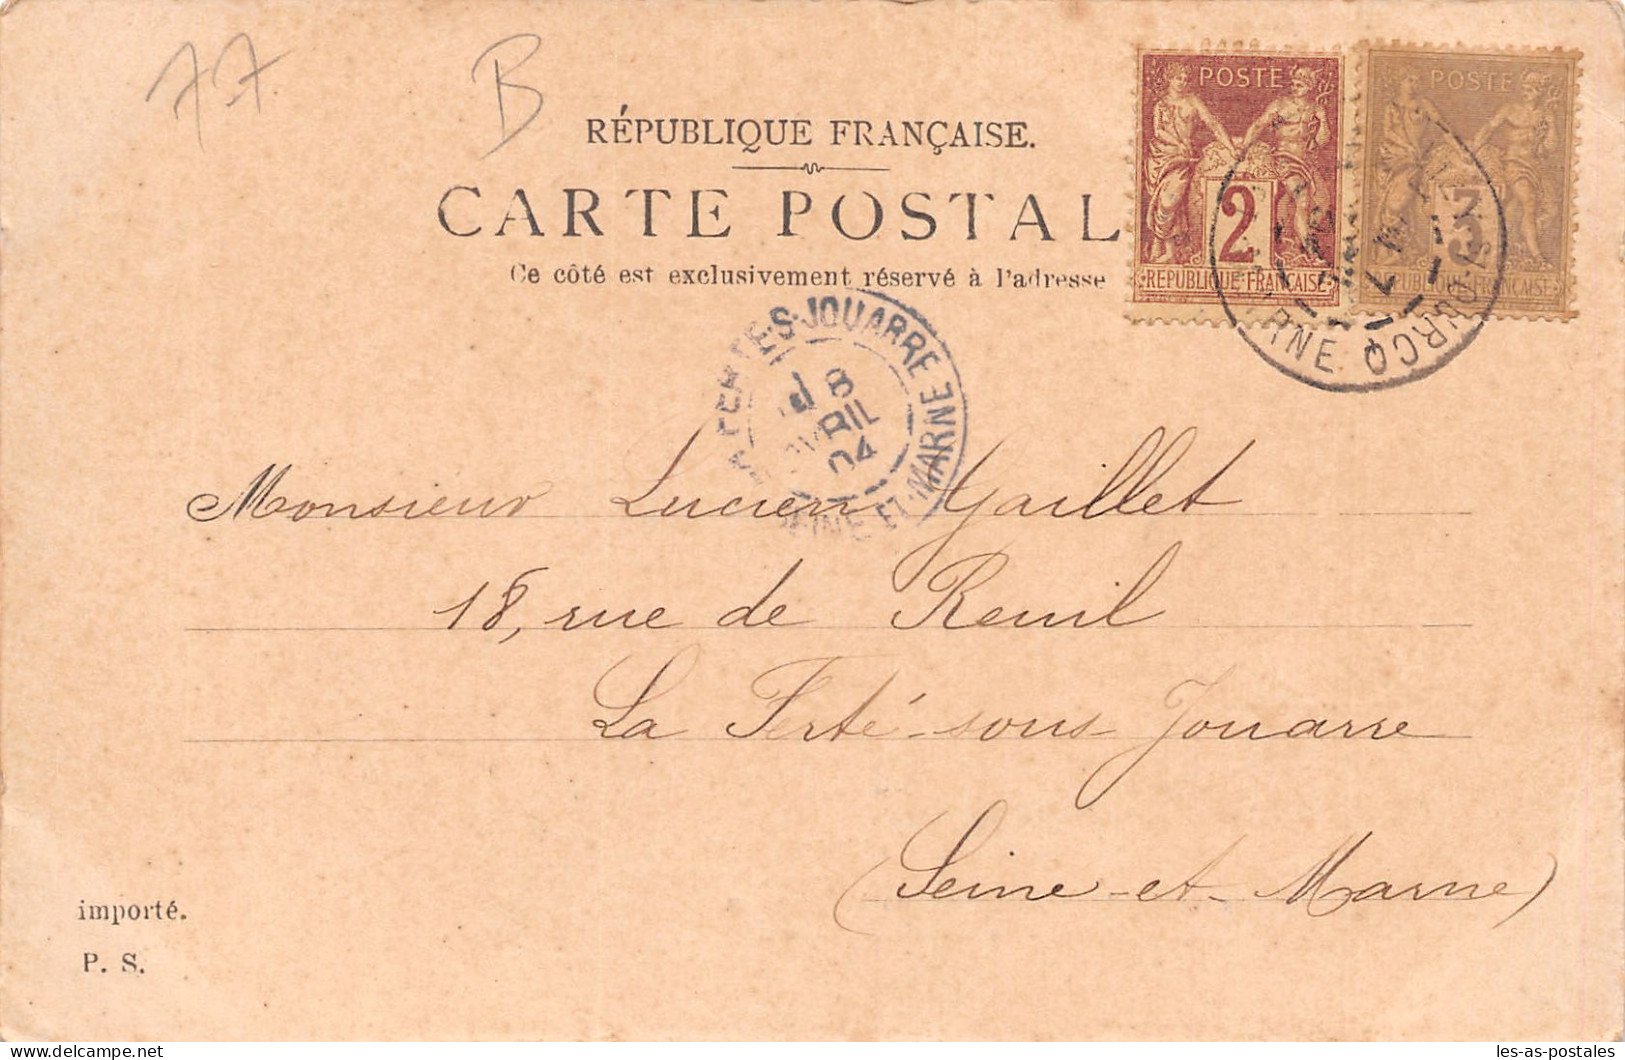 77 B
RÉPUBLIQUE FRANÇAISE.
CARTE POSTAL
Ce côté est exclusivement réservé à l'adresse
POSTE
2
REPUBLIQUE FRANÇAISE
POSTE
3
REPUBLIQUE FRANÇAISE
OURCQ
FERTE-S-JOUARRE
8
AVRIL
04
SEINE-ET-MARNE
Monsieur Lucien Gaillet
18, rue de Reuil
La Ferté-sous-Jouarre
(Seine-et-Marne)
importé.
P. S.
les-as-postales
delcampe.net